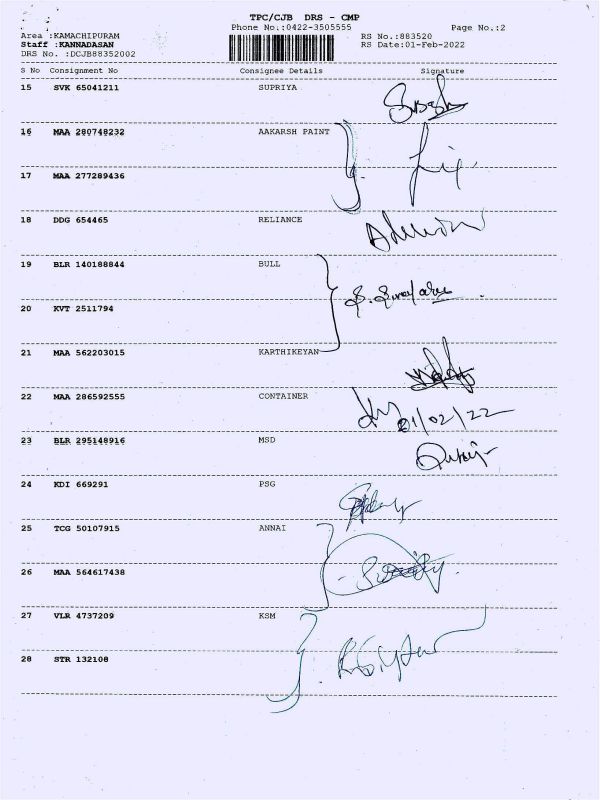 TPC/CJB DRS - CMP
Phone No.:0422-3505555 Page No.:2
Area :KAMACHIPURAM RS No.:883520
Staff :KANNADASAN RS Date:01-Feb-2022
DRS No. :DCJB88352002
S No Consignment No Consignee Details Signature
15 SVK 65041211 SUPRIYA
16 MAA 280748232 AAKARSH PAINT
17 MAA 277289436
18 DDG 654465 RELIANCE
19 BLR 140188844 BULL
20 KVT 2511794
21 MAA 562203015 KARTHIKEYAN
22 MAA 286592555 CONTAINER
01/02/22
23 BLR 295148916 MSD
24 KDI 669291 PSG
25 TCG 50107915 ANNAI
26 MAA 564617438
27 VLR 4737209 KSM
28 STR 132108